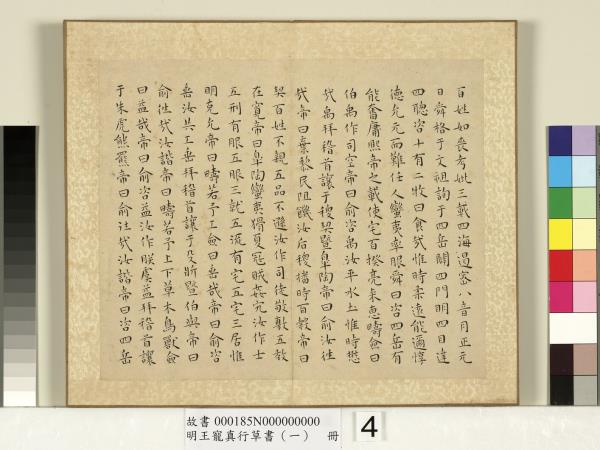 百姓如喪考妣三載四海遏密八音月正元
日舜格于文祖詢于四岳闢四門明四目達
四聰咨十有二牧曰食哉惟時柔遠能邇惇
德允元而難任人蠻夷率服舜曰咨四岳有
能奮庸熙帝之載使宅百揆亮采惠疇僉曰
伯禹作司空帝曰俞咨禹汝平水土惟時懋
哉禹拜稽首讓于稷契暨皐陶帝曰俞汝往
哉帝曰棄黎民阻饑汝后稷播時百穀帝曰
契百姓不親五品不遜汝作司徒敬敷五教
在寬帝曰皐陶蠻夷猾夏寇賊姦宄汝作士
五刑有服五服三就五流有宅五宅三居惟
明克允帝曰疇若予工僉曰垂哉帝曰俞咨
垂汝共工垂拜稽首讓于殳斨暨伯與帝曰
俞往哉汝諧帝曰疇若予上下草木鳥獸僉
曰益哉帝曰俞咨益汝作朕虞益拜稽首讓
于朱虎熊羆帝曰俞往哉汝諧帝曰咨四岳
故書 000185N000000000
明王寵真行草書(一) 冊
4